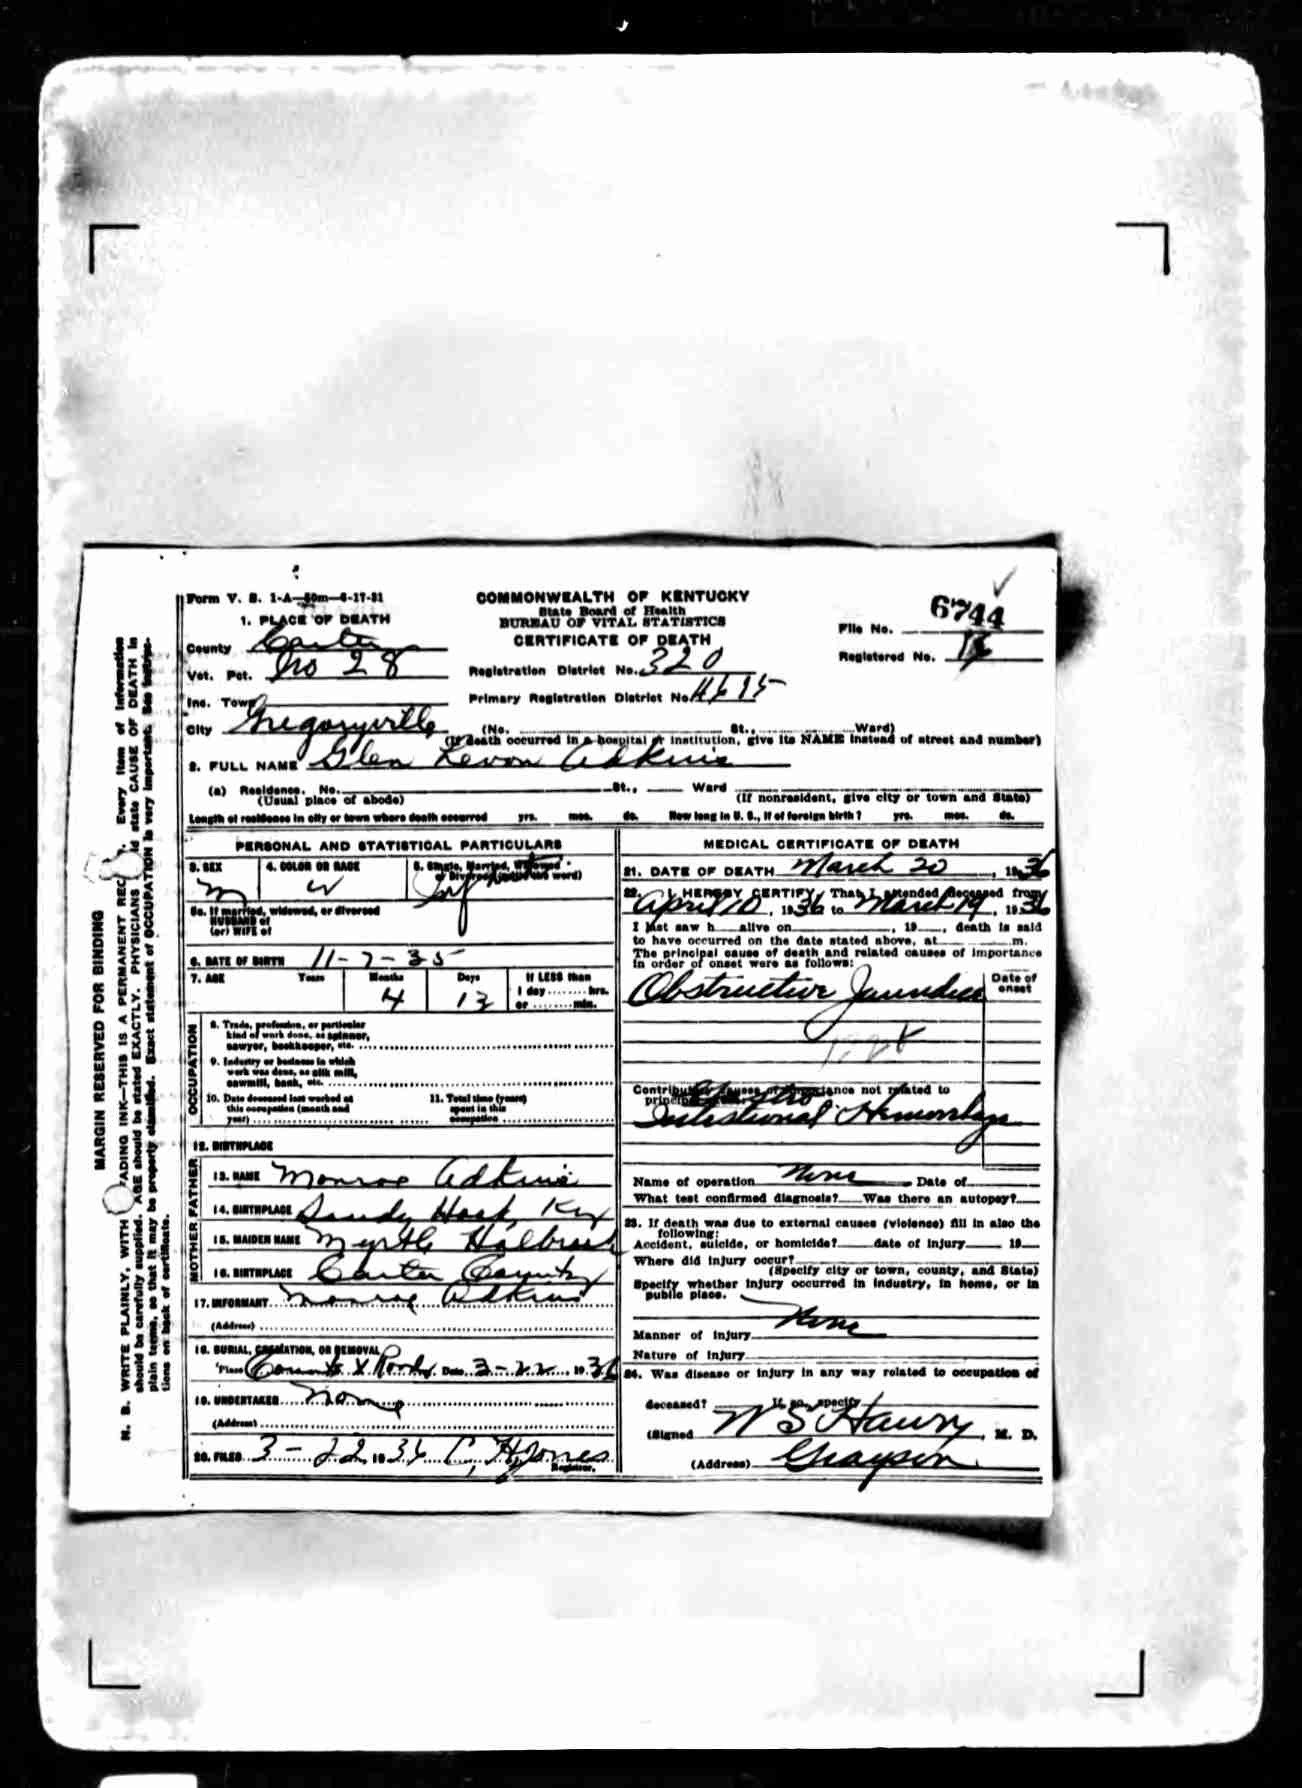 Form V. S. 1-A—50m—6-17-31
COMMONWEALTH OF KENTUCKY
State Board of Health
BUREAU OF VITAL STATISTICS
CERTIFICATE OF DEATH
File No. 6744
Registered No.
1. PLACE OF DEATH
County Carter
Vot. Pct. No 28
Registration District No. 320
Inc. Town
Primary Registration District No.
City Gregoryville (No. St., Ward)
(If death occurred in a hospital or institution, give its NAME instead of street and number)
2. FULL NAME Glen Levon Adkins
(a) Residence. No. St., Ward
(Usual place of abode) (If nonresident, give city or town and State)
Length of residence in city or town where death occurred yrs. mos. ds. How long in U. S., if of foreign birth? yrs. mos. ds.
PERSONAL AND STATISTICAL PARTICULARS
3. SEX 4. COLOR OR RACE 5. Single, Married, Widowed
or Divorced (write the word)
M W
5a. If married, widowed, or divorced
HUSBAND of
(or) WIFE of
6. DATE OF BIRTH 11-7-35
7. AGE Years Months Days If LESS than
4 13 1 day ........ hrs.
or ........ min.
OCCUPATION
8. Trade, profession, or particular
kind of work done, as spinner,
sawyer, bookkeeper, etc.
9. Industry or business in which
work was done, as silk mill,
sawmill, bank, etc.
10. Date deceased last worked at
this occupation (month and
year)
11. Total time (years)
spent in this
occupation
12. BIRTHPLACE
FATHER
13. NAME Monroe Adkins
14. BIRTHPLACE Sandy Hook, Ky
MOTHER
15. MAIDEN NAME Myrtle Halbrook
16. BIRTHPLACE Carter County
17. INFORMANT Monroe Adkins
(Address)
18. BURIAL, CREMATION, OR REMOVAL
Place Date 3-22, 1936
19. UNDERTAKER None
(Address)
20. FILED 3-22, 1936 C, H, Jones
Registrar.
MEDICAL CERTIFICATE OF DEATH
21. DATE OF DEATH March 20, 1936
22. I HEREBY CERTIFY, That I attended deceased from
April 10, 1936 to March 19, 1936
I last saw h alive on , 19 , death is said
to have occurred on the date stated above, at m.
The principal cause of death and related causes of importance
in order of onset were as follows:
Date of
onset
Obstructive Jaundice
Contributory causes of importance not related to
principal cause:
Gastro
Intestional Hemorrhage
Name of operation None Date of
What test confirmed diagnosis? Was there an autopsy?
23. If death was due to external causes (violence) fill in also the
following:
Accident, suicide, or homicide? date of injury 19
Where did injury occur?
(Specify city or town, county, and State)
Specify whether injury occurred in industry, in home, or in
public place.
None
Manner of injury
Nature of injury
24. Was disease or injury in any way related to occupation of
deceased? If so, specify
(Signed W S Hawry, M. D.
(Address) Grayson
MARGIN RESERVED FOR BINDING
N. B. WRITE PLAINLY, WITH ADING INK—THIS IS A PERMANENT REC Every item of information
should be carefully supplied. AGE should be stated EXACTLY. PHYSICIANS ld state CAUSE OF DEATH in
plain terms, so that it may be properly classified. Exact statement of OCCUPATION is very important. See instruc-
tions on back of certificate.